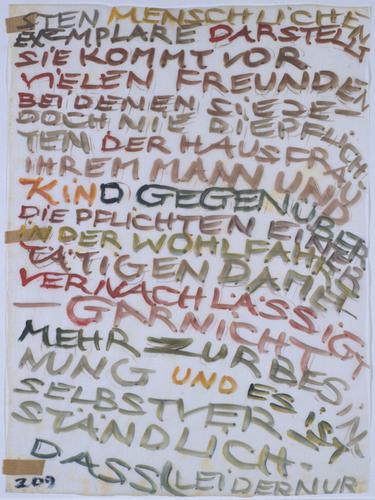 STEN MENSCHLICHEN
EXEMPLARE DARSTELLT
SIE KOMMT VOR
VIELEN FREUNDEN
BEI DENEN SIE JE-
DOCH NIE DIE PFLICH-
TEN DER HAUSFRAU
IHREM MANN UND
KIND GEGENÜBER
DIE PFLICHTEN EINER
IN DER WOHLFAHRT
TÄTIGEN DAME
VERNACHLÄSSIGT
— GARNICHT
MEHR ZUR BESIN
NUNG UND ES IST
SELBSTVER
STÄNDLICH-
DASS (LEIDER NUR
209